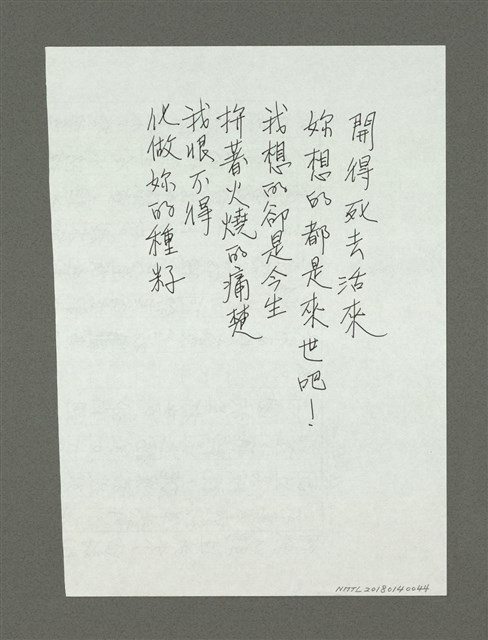 開得死去活來
妳想的都是來世吧！
我想的卻是今生
拚著火燒的痛楚
我恨不得
化做妳的種籽
NMTL20180140044